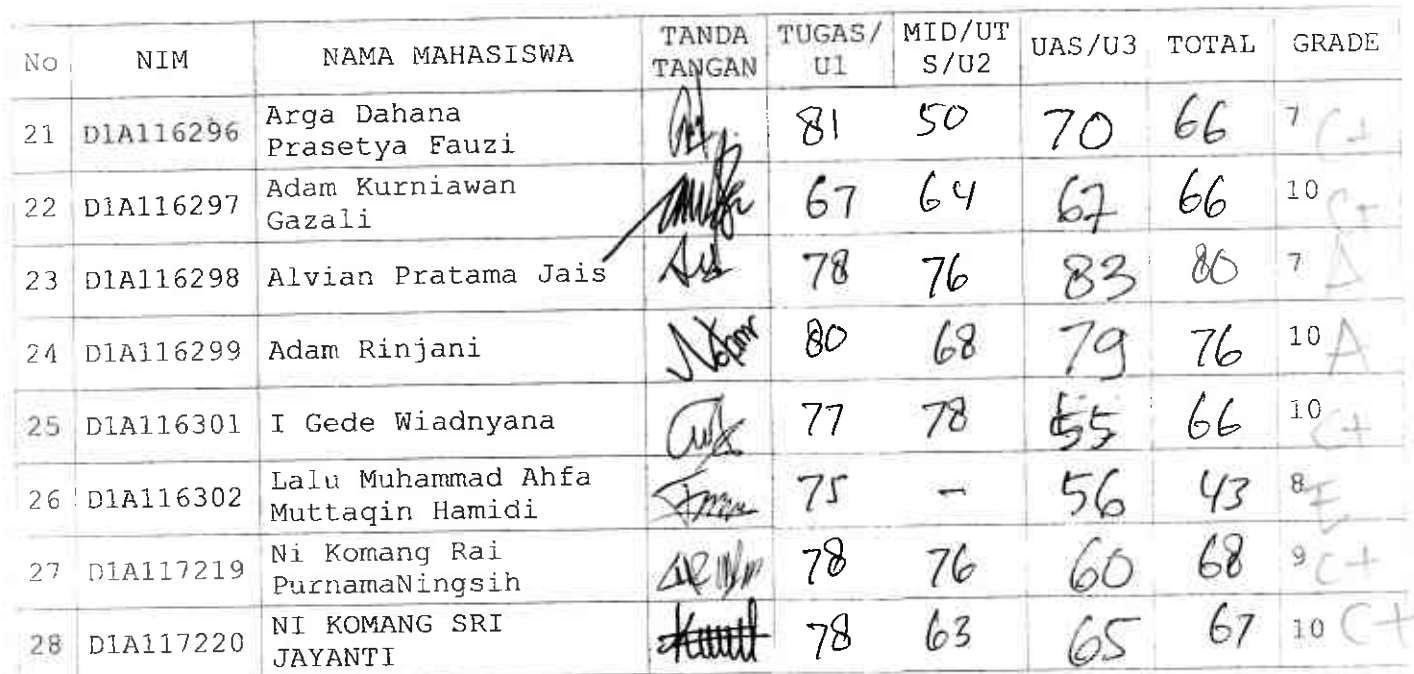 No NIM NAMA MAHASISWA TANDA TANGAN TUGAS/ U1 MID/UT S/U2 UAS/U3 TOTAL GRADE
21 D1A116296 Arga Dahana Prasetya Fauzi 81 50 70 66 7 C+
22 D1A116297 Adam Kurniawan Gazali 67 64 67 66 10 C+
23 D1A116298 Alvian Pratama Jais 78 76 83 80 7 A
24 D1A116299 Adam Rinjani 80 68 79 76 10 A
25 D1A116301 I Gede Wiadnyana 77 78 55 66 10 C+
26 D1A116302 Lalu Muhammad Ahfa Muttaqin Hamidi 75 - 56 43 8 E
27 D1A117219 Ni Komang Rai PurnamaNingsih 78 76 60 68 9 C+
28 D1A117220 NI KOMANG SRI JAYANTI 78 63 65 67 10 C+